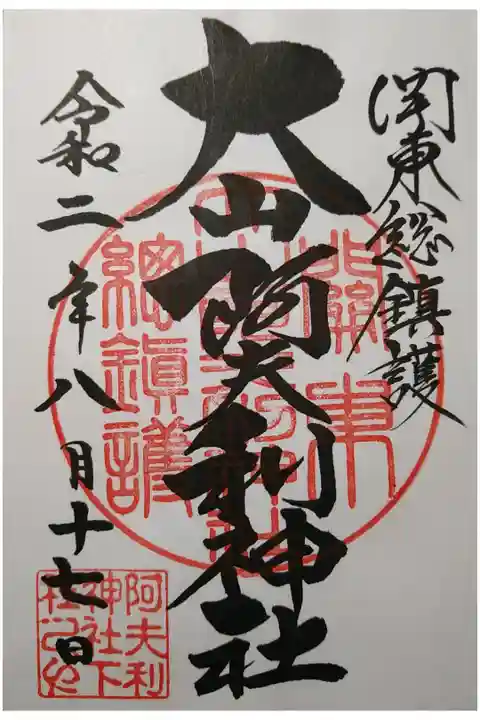 関東総鎮護
大山阿夫利神社
令和二年八月十七日
關東
總鎮護
阿夫利
神社下
社之印